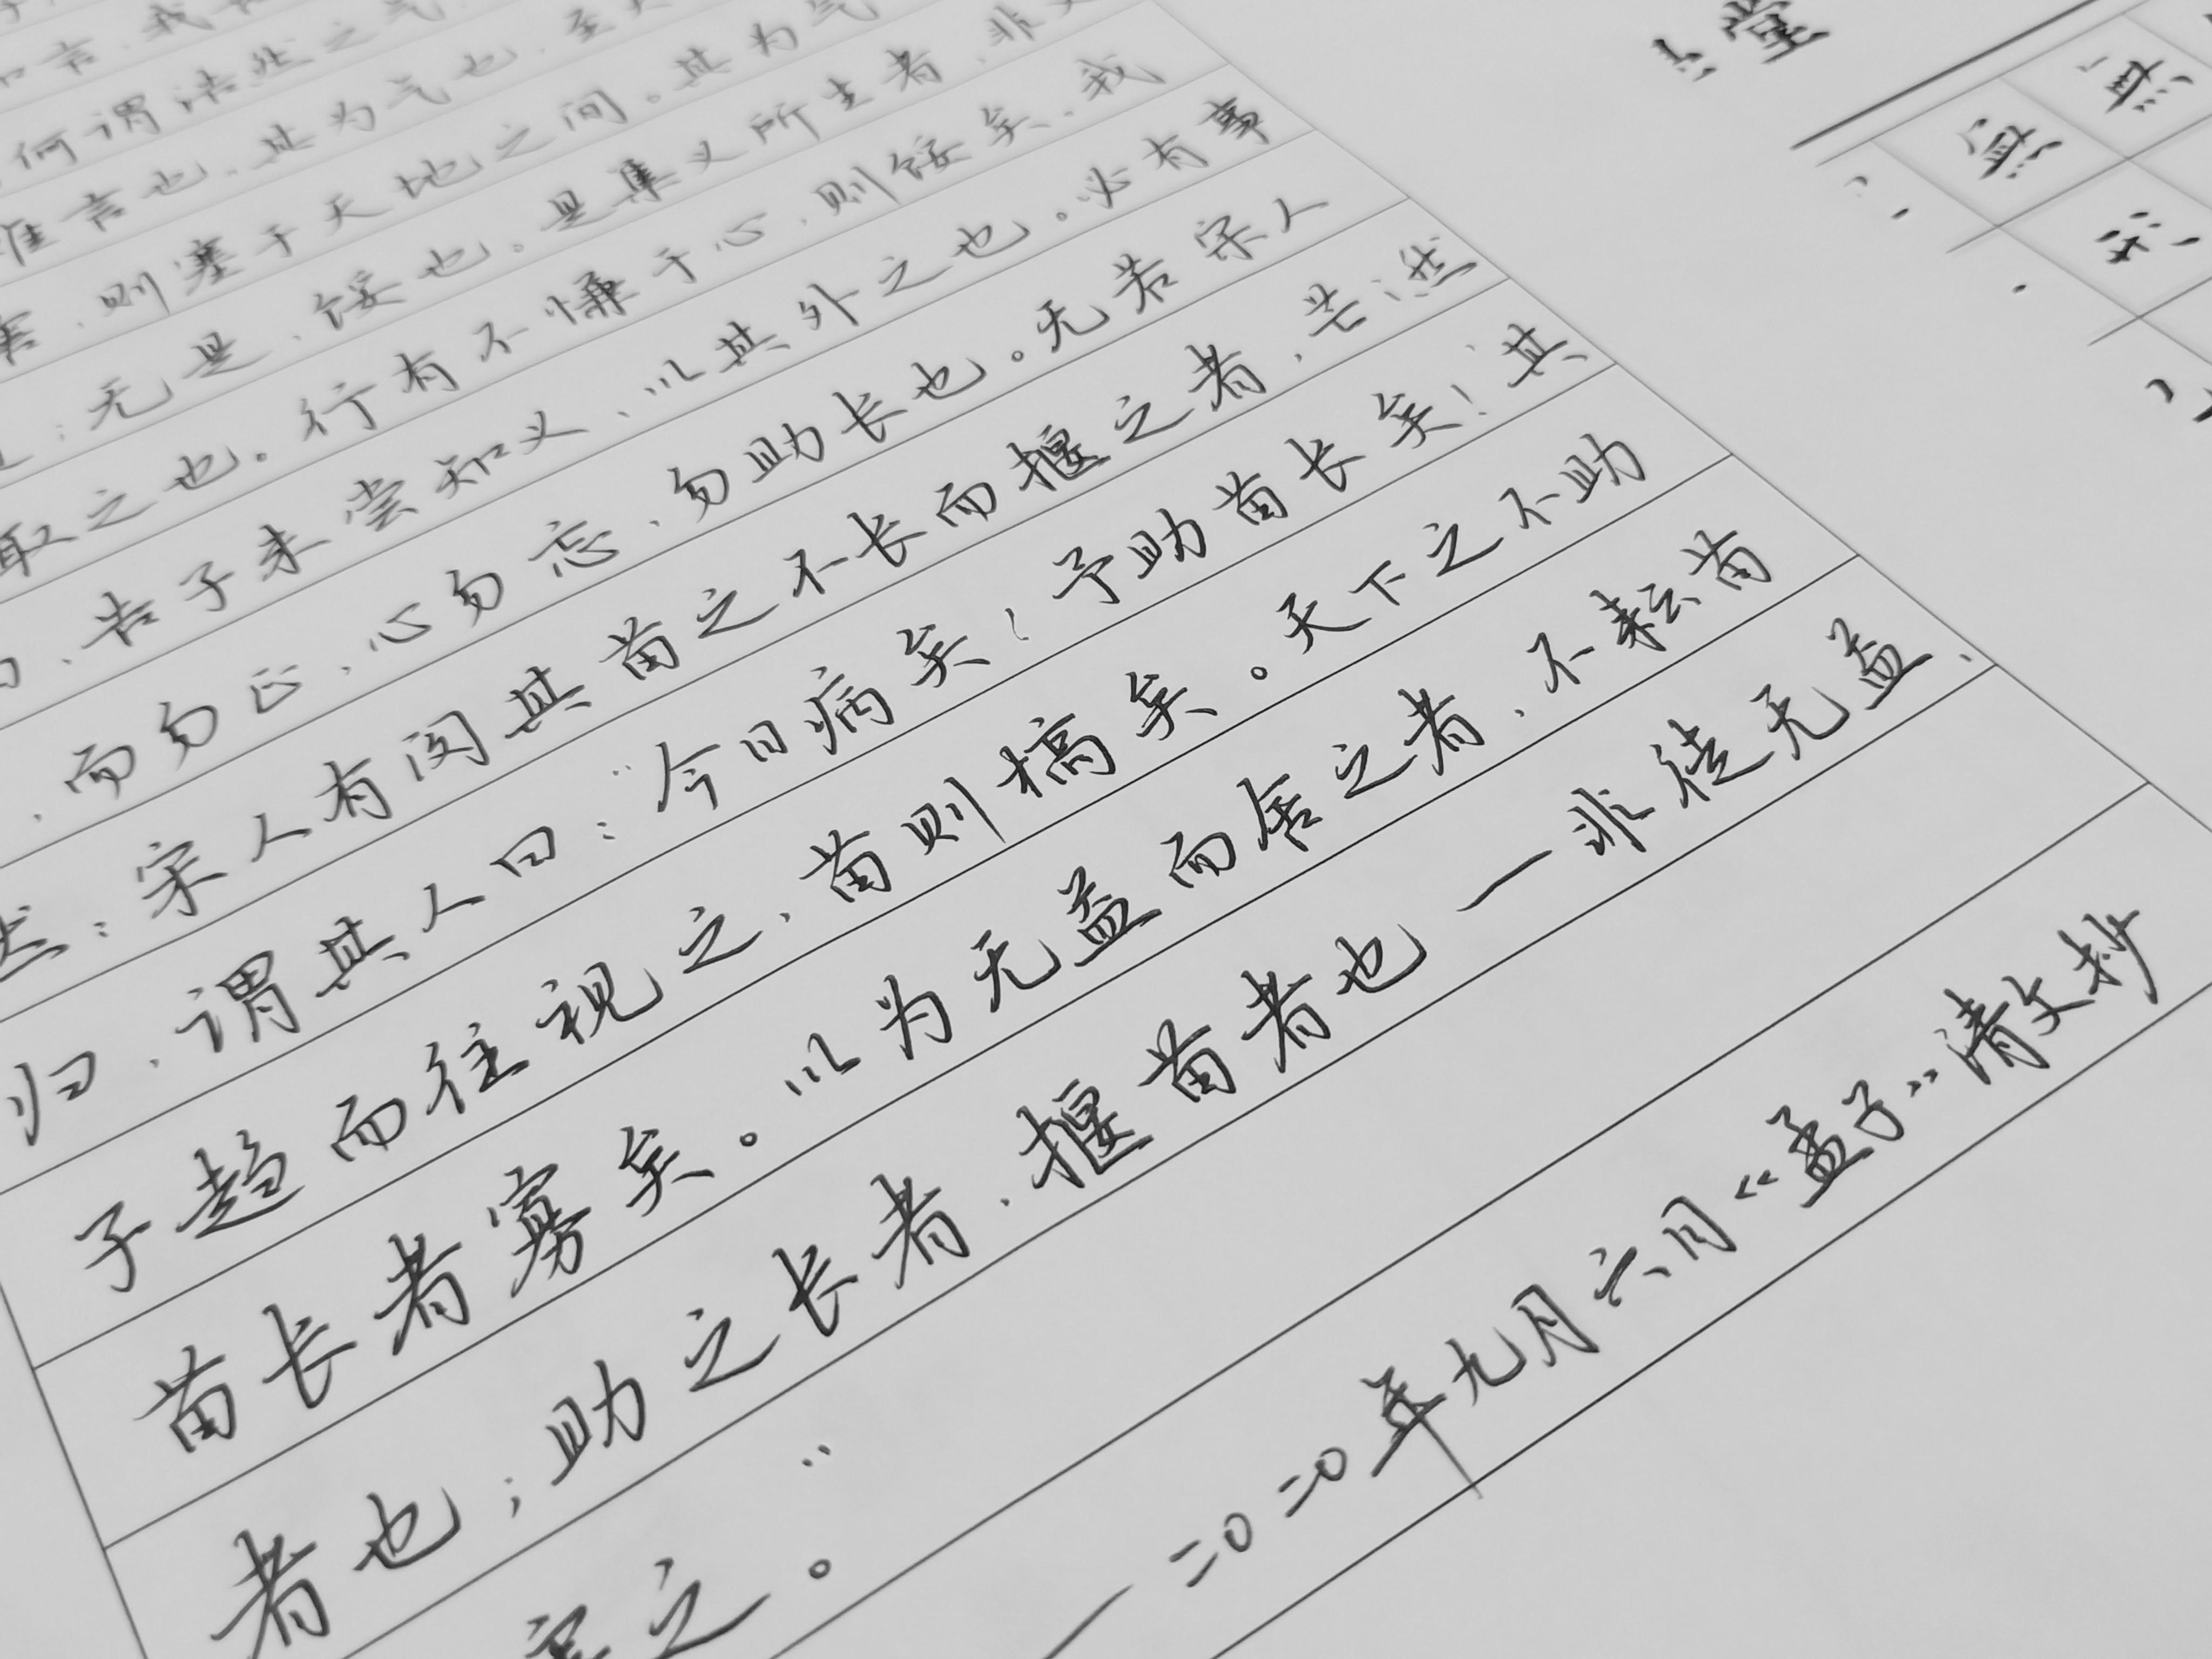 何谓浩然之气
难言也，其为气也，至
害，则塞于天地之间。其为气
无是，馁也。是集义所生者，非
取之也。行有不慊于心，则馁矣。我
，告子未尝知义，以其外之也。必有事
，而勿正，心勿忘，勿助长也。无若宋人
然：宋人有闵其苗之不长而揠之者，芒芒然
归，谓其人曰：“今日病矣！予助苗长矣！”其
子趋而往视之，苗则槁矣。天下之不助
苗长者寡矣。以为无益而舍之者，不耘苗
者也；助之长者，揠苗者也一非徒无益，
害之。”
一二〇二〇年九月六日《孟子》清文抄
堂
無
無